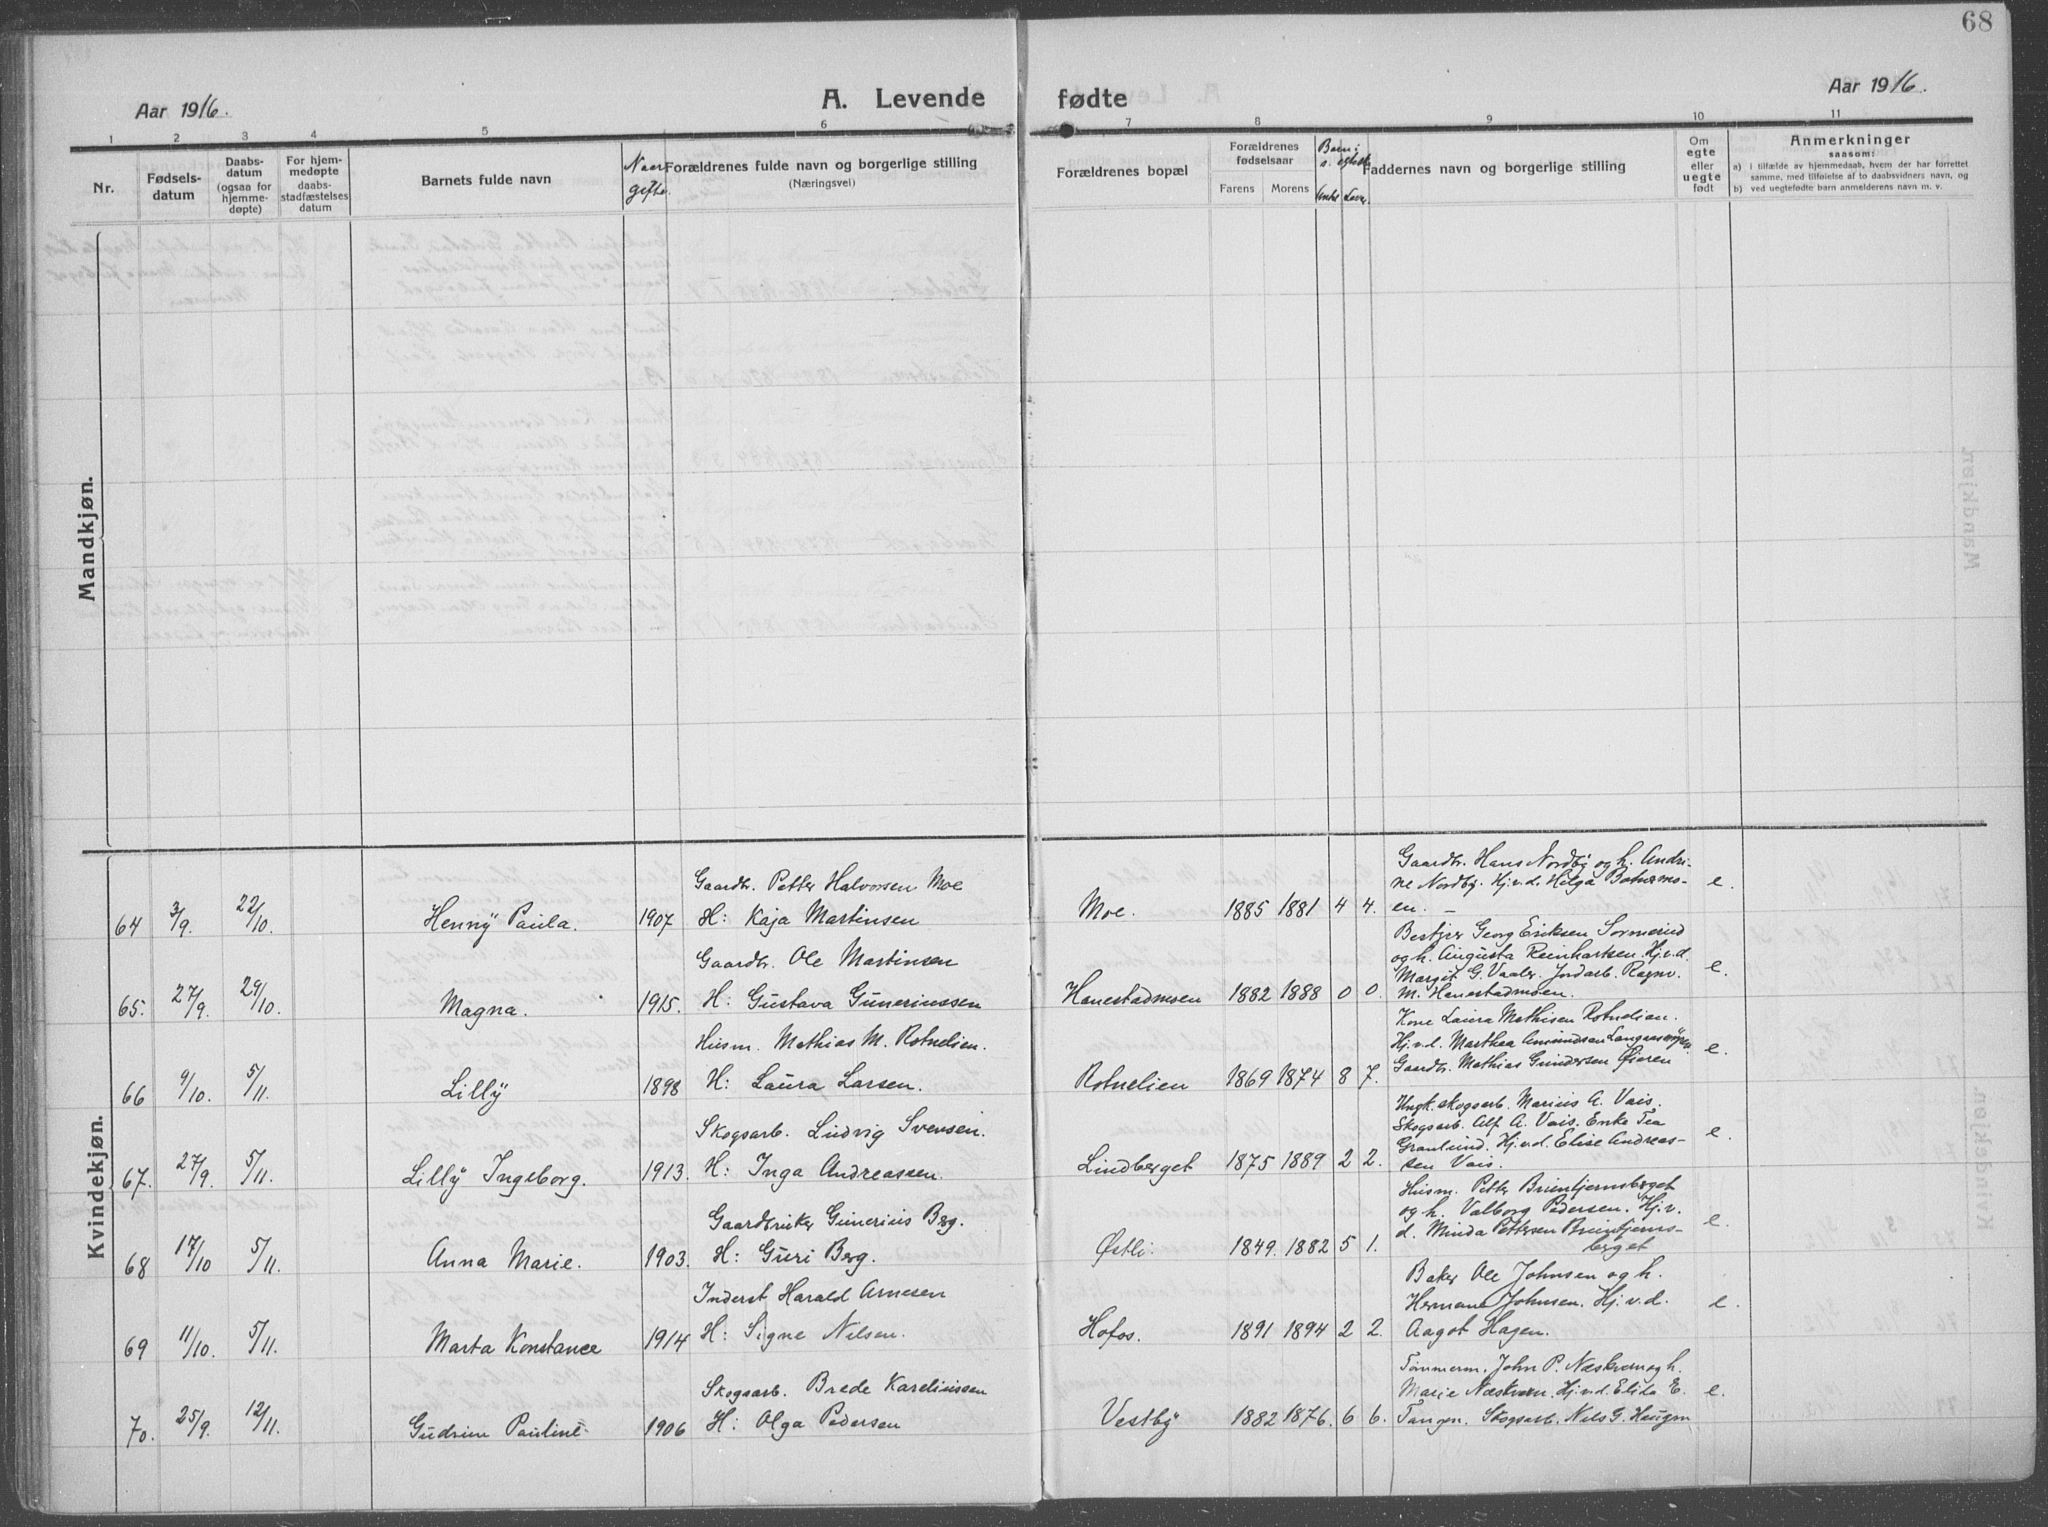 68
Aar 1916.
A. Levende fødte
Aar 1916.
1 2 3 4 5 6 7 8 9 10 11
Nr.
Fødsels-
datum
Daabs-
datum
(ogsaa for
hjemme-
døpte)
For hjem-
medøpte
daabs-
stadfæstelses
datum
Barnets fulde navn
Naar
gifte.
Forældrenes fulde navn og borgerlige stilling
(Næringsvei)
Forældrenes bopæl
Forældrenes
fødselsaar
Farens Morens
Faddernes navn og borgerlige stilling
Om
egte
eller
uegte
født
Anmerkninger
saasom:
a) i tilfælde av hjemmedaab, hvem der har forrettet
samme, med tilføielse af to daabsvidners navn, og
b) ved uegtefødte barn anmelderens navn m. v.
Mandkjøn.
Kvindekjøn.
64 3/9. 22/10. Henny Paula. 1907
Gaardbr. Petter Halvorsen Moe
H: Kaja Martinsen
Moe. 1885 1881 4 4.
Gaardbr. Hans Nordby og h. Andri-
ne Nordby. Hj.v.d. Helga
en.
e.
65. 27/9. 29/10. Magna. 1915.
Gaardbr. Ole Martinsen
H: Gustava Gunerinssen
Hanestadmoen 1882 1888 0 0.
Georg Eriksen
og h. Augusta Reinhartsen. Hj.v.d.
Margit G. Vaaler. Jordarb. Ragnv.
M. Hanestadmoen.
e.
66 9/10. 5/11. Lilly 1898
Husm. Mathias M. Rotnelien.
H: Laura Larsen.
Rotnelien 1869 1874 8 7.
Kone Laura Mathisen Rotnelien.
Hj.v.d. Marthea Amundsen
Gaardbr. Mathias Gundersen Øieren
e.
67. 27/9. 5/11. Lilly Ingeborg. 1913.
Skogsarb. Ludvig Svensen.
H: Inga Andreassen.
Lindberget 1875 1889 2 2.
Ungk. skogsarb. Marius A. Vais.
Skogsarb. Alf A. Vais. Enke Tea
Granlund. Hj.v.d. Elise Andreas-
sen Vais.
e.
68 17/10 5/11. Anna Marie. 1903.
Gaardbruker Gunerius Berg.
H: Guri Berg.
Østli. 1849. 1882 5 1.
Husm. Petter Brientjernsberget
og h. Valborg Pedersen. Hj.v.
d. Minda Pettersen Brientjerns-
berget
e.
69 11/10. 5/11. Marta Konstance 1914
Inderst Harald Arnesen
H: Signe Nilsen.
Hofos. 1891 1894 2 2.
Baker Ole Johnsen og h.
Hermane Johnsen. Hj.v.d.
Aagot Hagen.
e.
70. 25/9. 12/11. Gudrun Pauline 1906
Skogsarb. Brede Kareliussen
H: Olga Pedersen
Vestby 1882 1876. 6 6.
Tømmerm. John P. Næskvern og h.
Marie Næskvern. Hj.v.d. Elida E.
Tangen. Skogsarb. Nils G. Haugen
e.